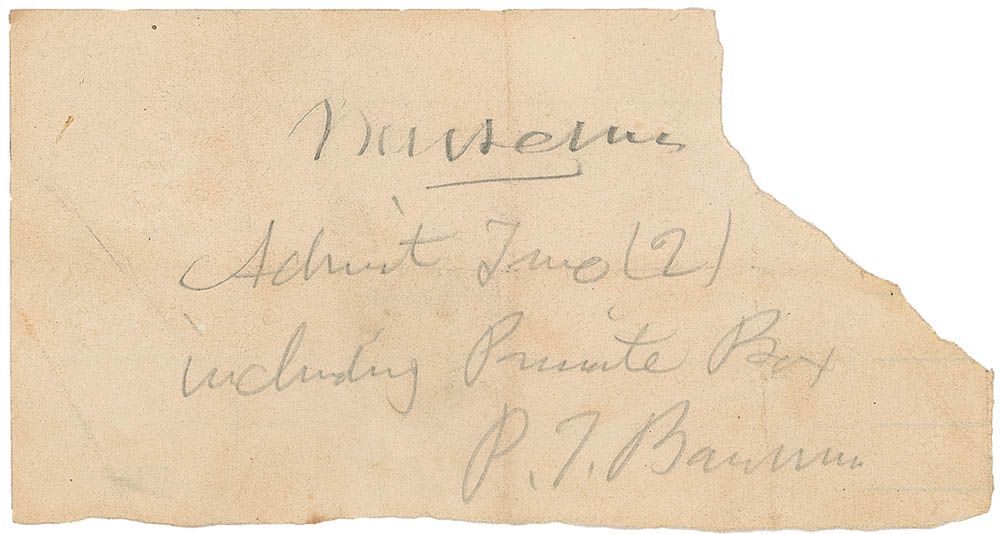 Museum
Admit Two (2)
including Private Box
P. T. Barnum